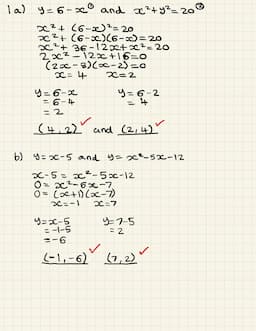 1a) y=6-x① and x²+y²=20②
x²+(6-x)²=20
x²+(6-x)(6-x)=20
x²+36-12x+x²=20
2x²-12x+16=0
(2x-8)(x-2)=0
x=4 x=2
y=6-x y=6-2
=6-4 =4
=2
(4,2) ✓ and (2,4) ✓
b) y=x-5 and y=x²-5x-12
x-5=x²-5x-12
0=x²-6x-7
0=(x+1)(x-7)
x=-1 x=7
y=x-5 y=7-5
=-1-5 =2
=-6
(-1,-6) ✓ (7,2) ✓